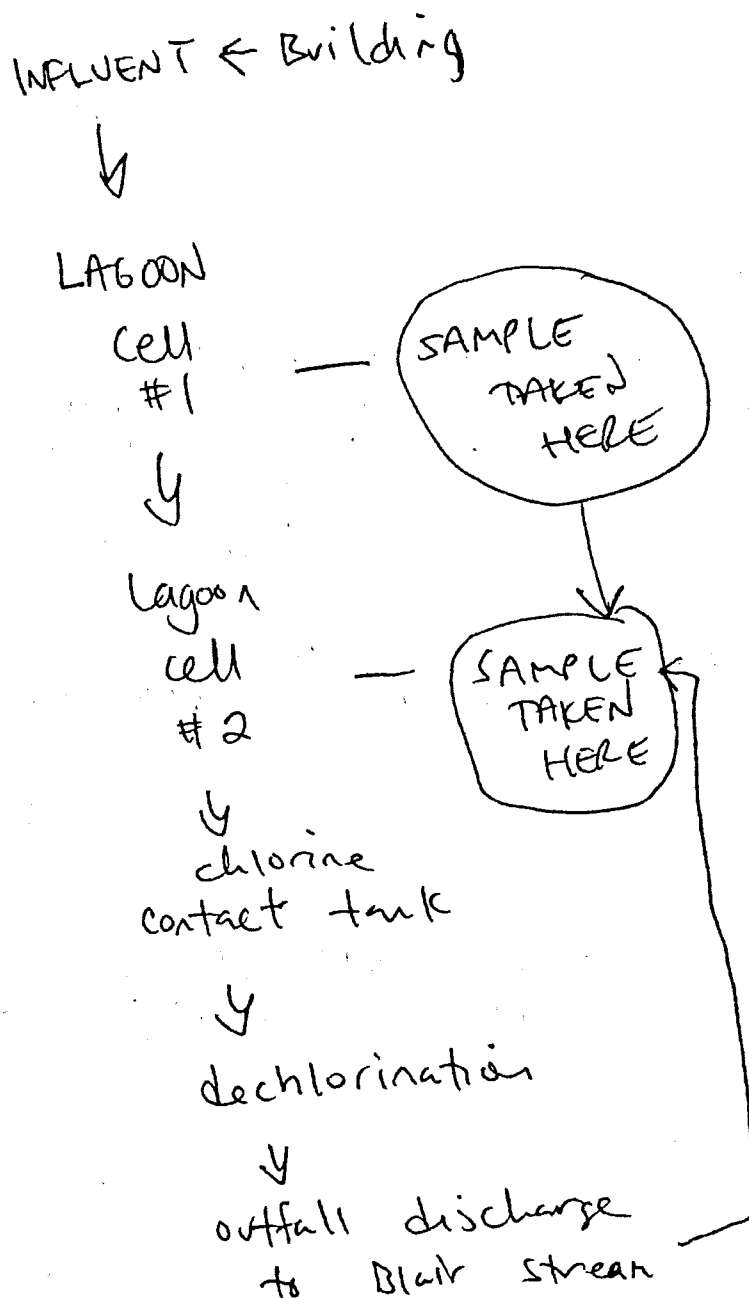 INFLUENT ← Building
LAGOON
Cell
#1
SAMPLE
TAKEN
HERE
Lagoon
cell
#2
SAMPLE
TAKEN
HERE
chlorine
contact tank
dechlorination
outfall discharge
to Blair stream